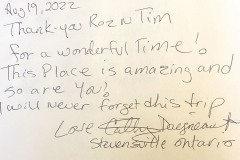 Aug 19, 2022
Thank-you Roz N Tim
for a wonderful Time!
This Place is amazing and
so are You!
I will never forget this trip
Love Cathy
Stevensville ontario